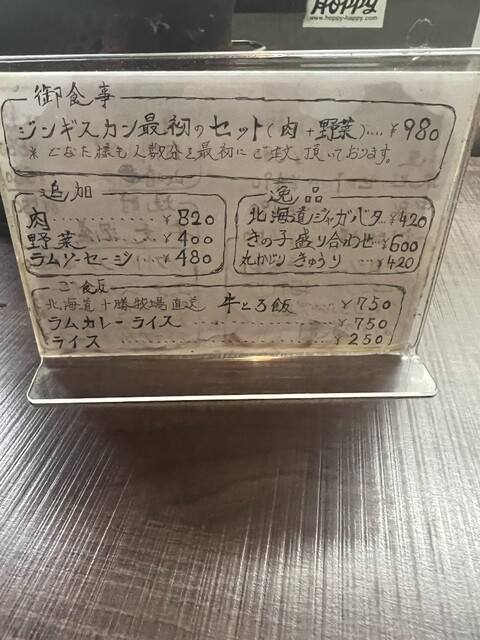 HOPPY
www.hoppy-happy.com
御食事
ジンギスカン最初のセット(肉+野菜)…¥980
※どなた様も人数分を最初にご注文頂いております。
追加
肉………¥820
野菜………¥400
ラムソーセージ…¥480
逸品
北海道ジャガバタ¥420
きの子盛り合わせ¥600
丸かじりきゅうり…¥420
ご飯
北海道十勝牧場直送 牛とろ飯…¥750
ラムカレーライス………¥750
ライス………¥250